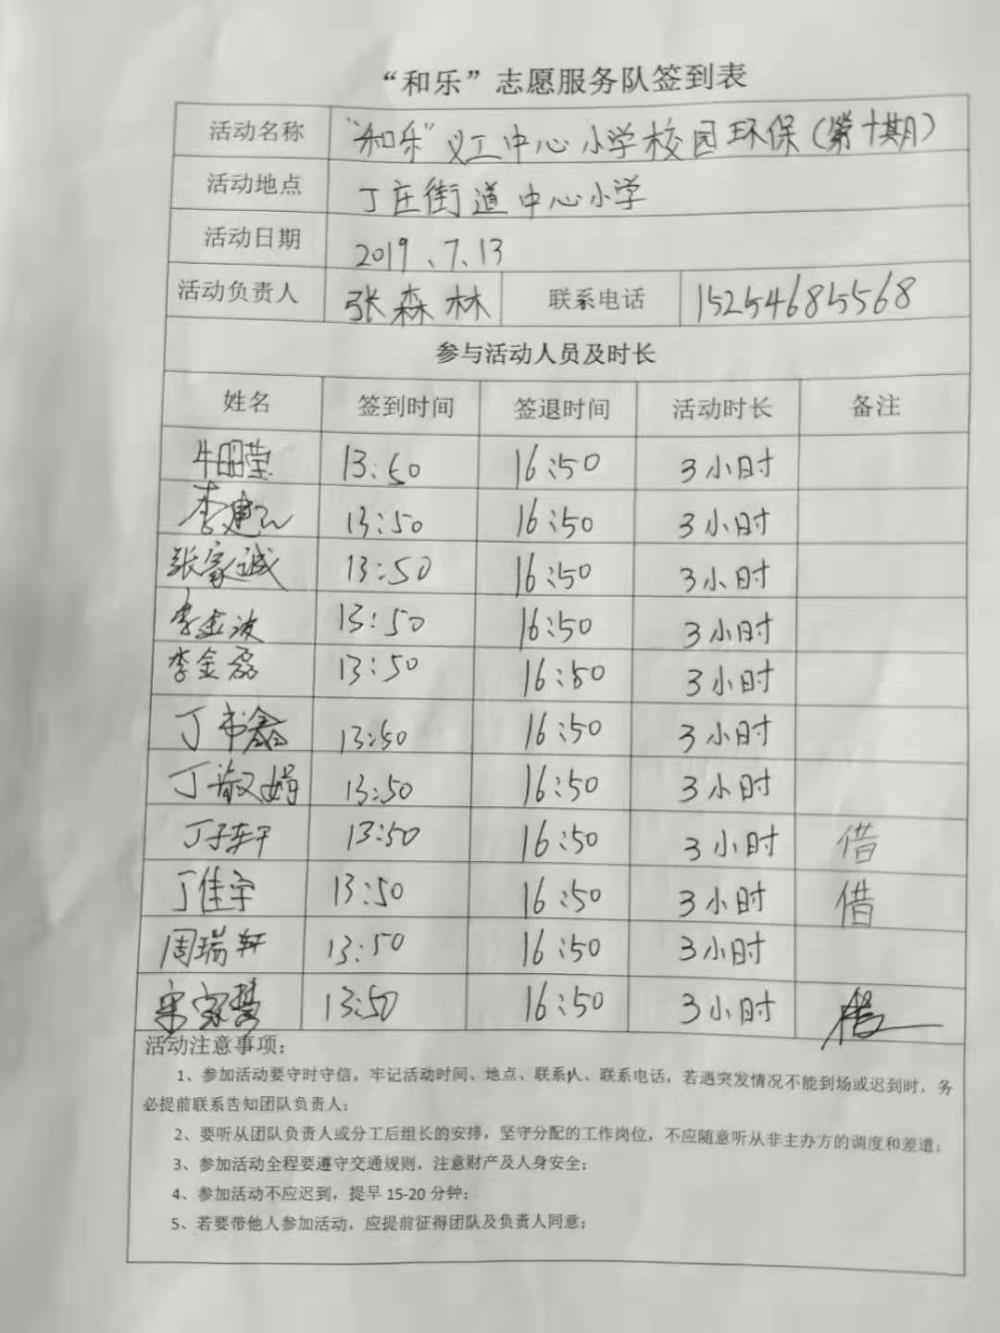 “和乐”志愿服务队签到表
活动名称 “和乐”义工中心小学校园环保(第十期)
活动地点 丁庄街道中心小学
活动日期 2019.7.13
活动负责人 张森林 联系电话 15254685568
参与活动人员及时长
姓名 签到时间 签退时间 活动时长 备注
牛珊莹 13:50 16:50 3小时
李建 13:50 16:50 3小时
张家诚 13:50 16:50 3小时
李金波 13:50 16:50 3小时
李金磊 13:50 16:50 3小时
丁书鑫 13:50 16:50 3小时
丁淑娟 13:50 16:50 3小时
丁子轩 13:50 16:50 3小时 借
丁佳宇 13:50 16:50 3小时 借
周瑞轩 13:50 16:50 3小时
宋家慧 13:50 16:50 3小时 借
活动注意事项:
1、参加活动要守时守信，牢记活动时间、地点、联系人、联系电话，若遇突发情况不能到场或迟到时，务
必提前联系告知团队负责人;
2、要听从团队负责人或分工后组长的安排，坚守分配的工作岗位，不应随意听从非主办方的调度和差遣;
3、参加活动全程要遵守交通规则，注意财产及人身安全;
4、参加活动不应迟到，提早 15-20 分钟;
5、若要带他人参加活动，应提前征得团队及负责人同意;